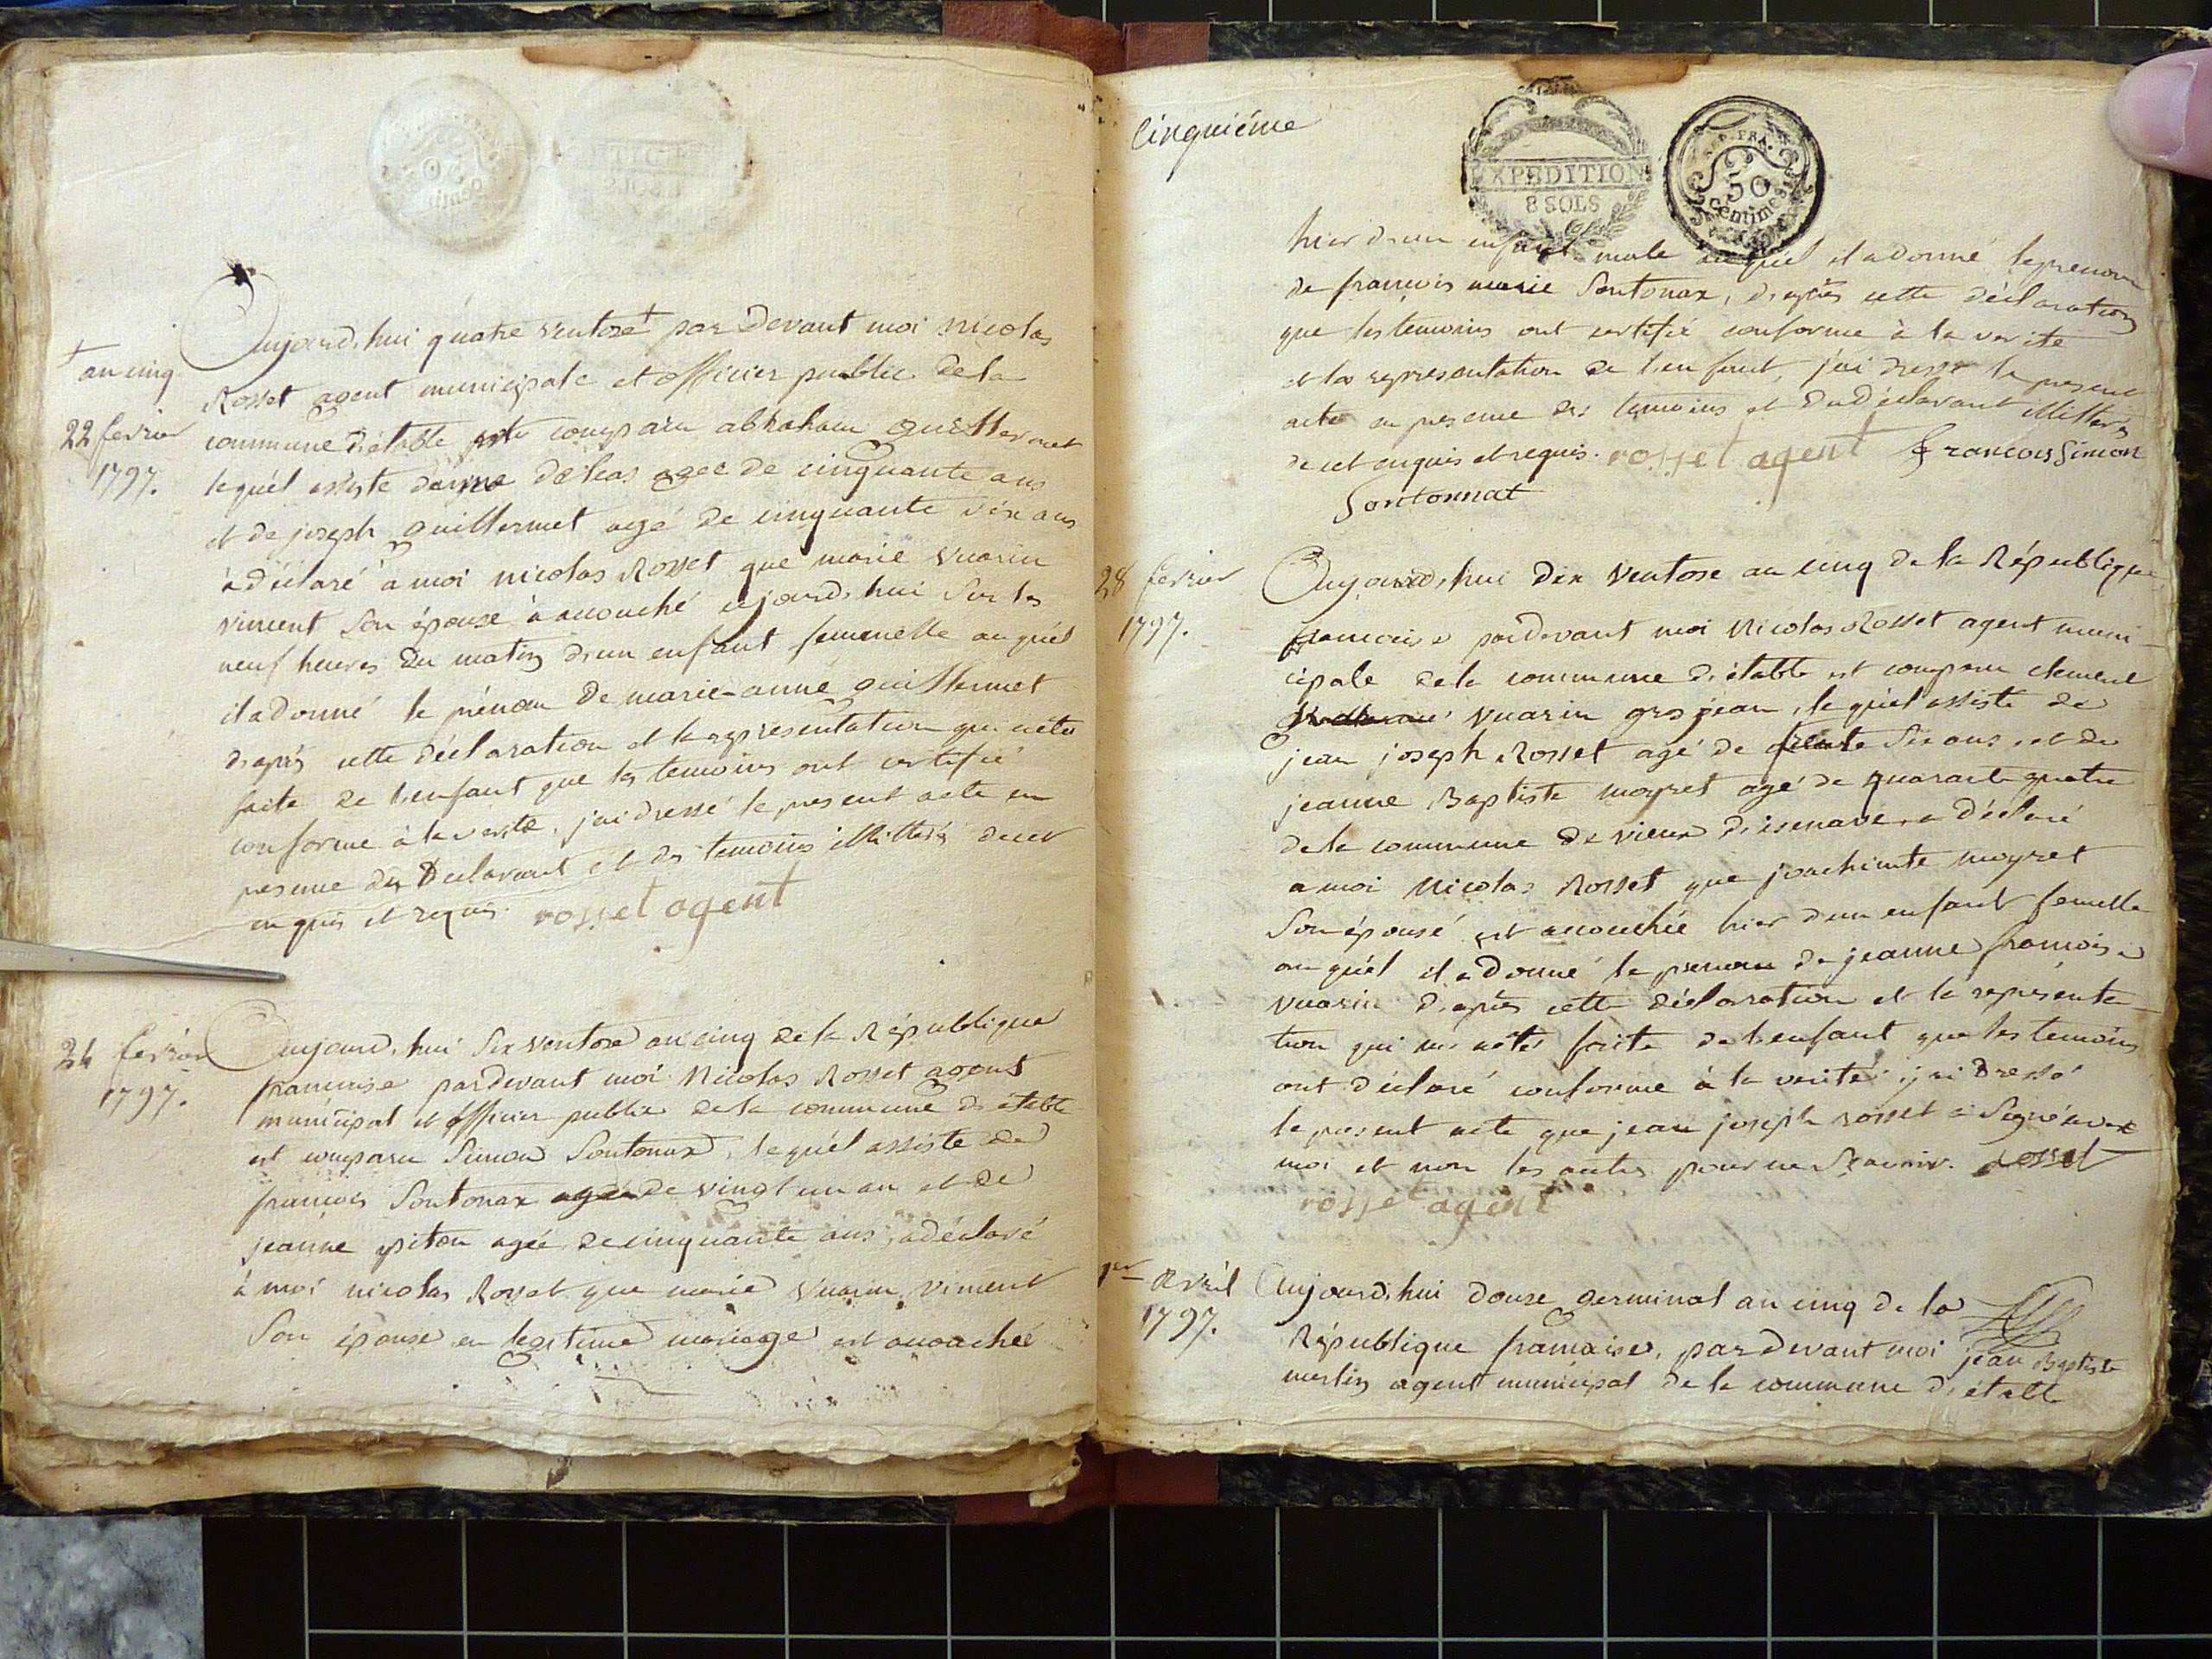 Aujourd'hui quatre ventose + par devant moi nicolas
+ an cinq
Rosset agent municipale et officier public de la
22 fevrier
1797.
commune d'étable est comparu abraham guillermet
lequél assiste de agée de cinquante ans
et de joseph guillermet agé de cinquante six ans
à déclaré à moi nicolas Rosset que marie vuarin
vincent son épouse à acouché aujourd'hui sur les
neuf heures du matin d'un enfant femmelle auquél
il a donné le prénom de marie-anne guillermet
d'après cette déclaration et la representation qui m'a été
faite de l'enfant que les temoins ont certifié
conforme à la verité, j'ai dressé le present acte en
presence du Declarant et des temoins illitterés de cet
enquis et requis. rosset agent
24 fevrier
1797.
Aujourd'hui six ventose an cinq de la République
francaise pardevant moi Nicolas Rosset agent
municipal et officier public de la commune d'étable
est comparu Simon Sontonax, lequél assiste de
francois Sontonax agé de vingt un an et de
jeanne piton agée de cinquante ans, a déclaré
à moi nicolas Rosset que marie vuarin vincent
son épouse en legitime mariage est acouchée
Cinquiéme
EXPEDITION
8 SOLS
REP. FRA.
50
Centimes
hier d'un enfant male auquél il a donné le prenom
de francois marie Sontonax, d'après cette déclaration
que les temoins ont certifié conforme à la verité
et la representation de l'enfant, j'ai dressé le present
acte en presence des temoins et du déclarant illiterés
de cet enquis et requis. rosset agent francois Simon
Sontonnat
28 fevrier
1797.
Aujourd'hui dix ventose an cinq de la République
francaise pardevant moi Nicolas Rosset agent muni-
cipale de la commune d'étable est comparu clement
vuarin gros jean, lequél assiste de
jean joseph Rosset agé de trente six ans, et de
jeanne Baptiste moyret agé de quarante quatre
de la commune de vieux d'isenave, a déclaré
a moi Nicolas Rosset que joachimte moyret
son épousé est acouchée hier d'un enfant femelle
auquél il a donné le prenom de jeanne francoise
vuarin d'après cette déclaration et la représenta-
tion qui m'a été faite de l'enfant que les temoins
ont déclaré conforme à la verité, j'ai dressé
le present acte que jean joseph rosset a signé avec
moi et non les autres pour ne scavoir. Rosset
rosset agent
1er Avril
1797.
Aujourd'hui douze germinal an cinq de la
République francaise, par devant moi jean Baptiste
merlin agent municipal de la commune d'étable